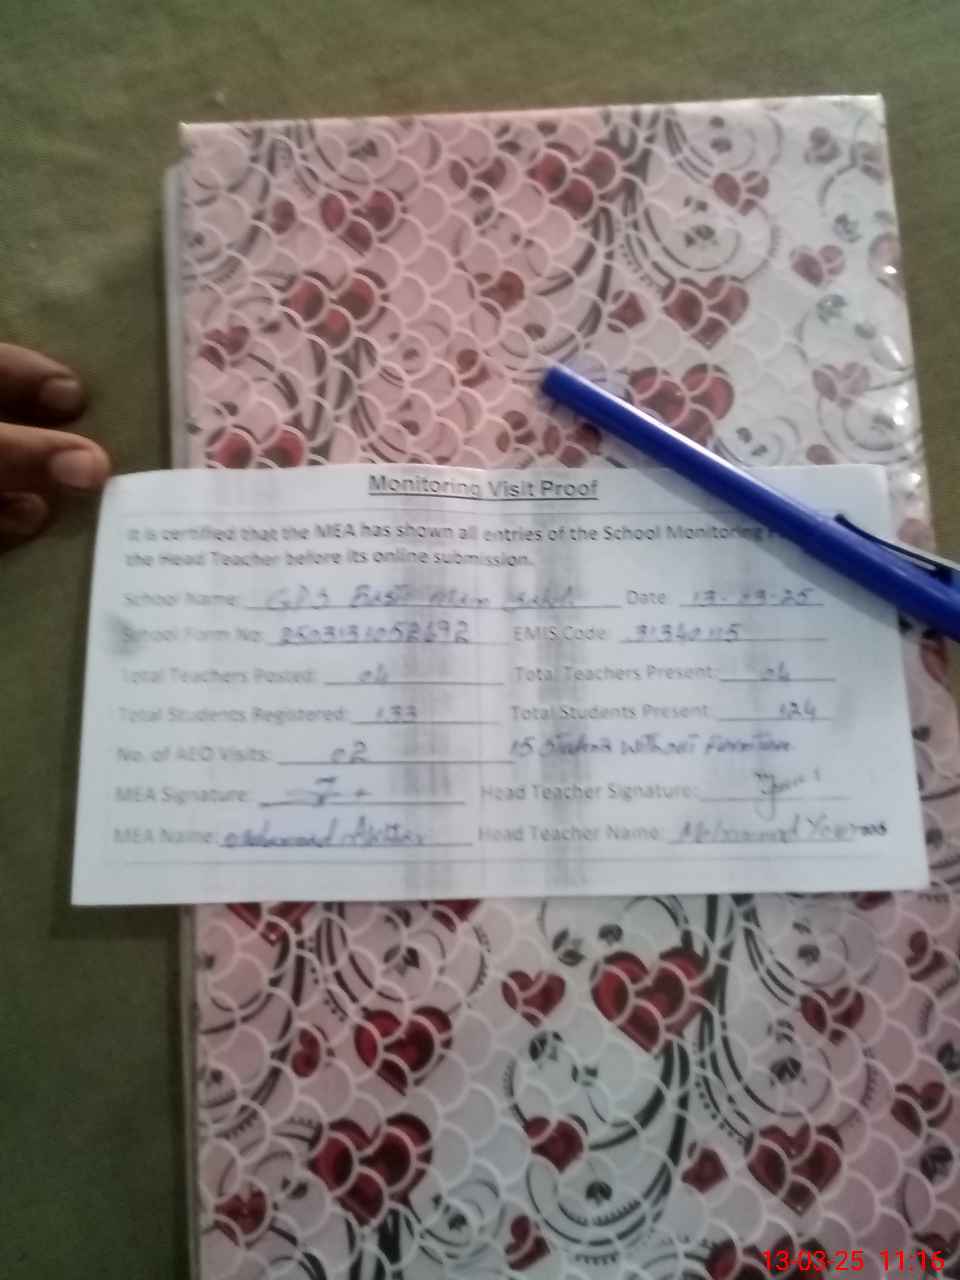 Monitoring Visit Proof
It is certified that the MEA has shown all entries of the School Monitoring
the Head Teacher before its online submission.
School Name: GPS Basti Date: 13-03-25
School Form No: EMIS Code: 31340115
Total Teachers Posted: 04 Total Teachers Present: 04
Total Students Registered: 133 Total Students Present: 124
No. of AEO Visits: 02 15 Students Without Furniture
MEA Signature: Head Teacher Signature:
MEA Name: Head Teacher Name: Mohammad
13-03-25 11:16